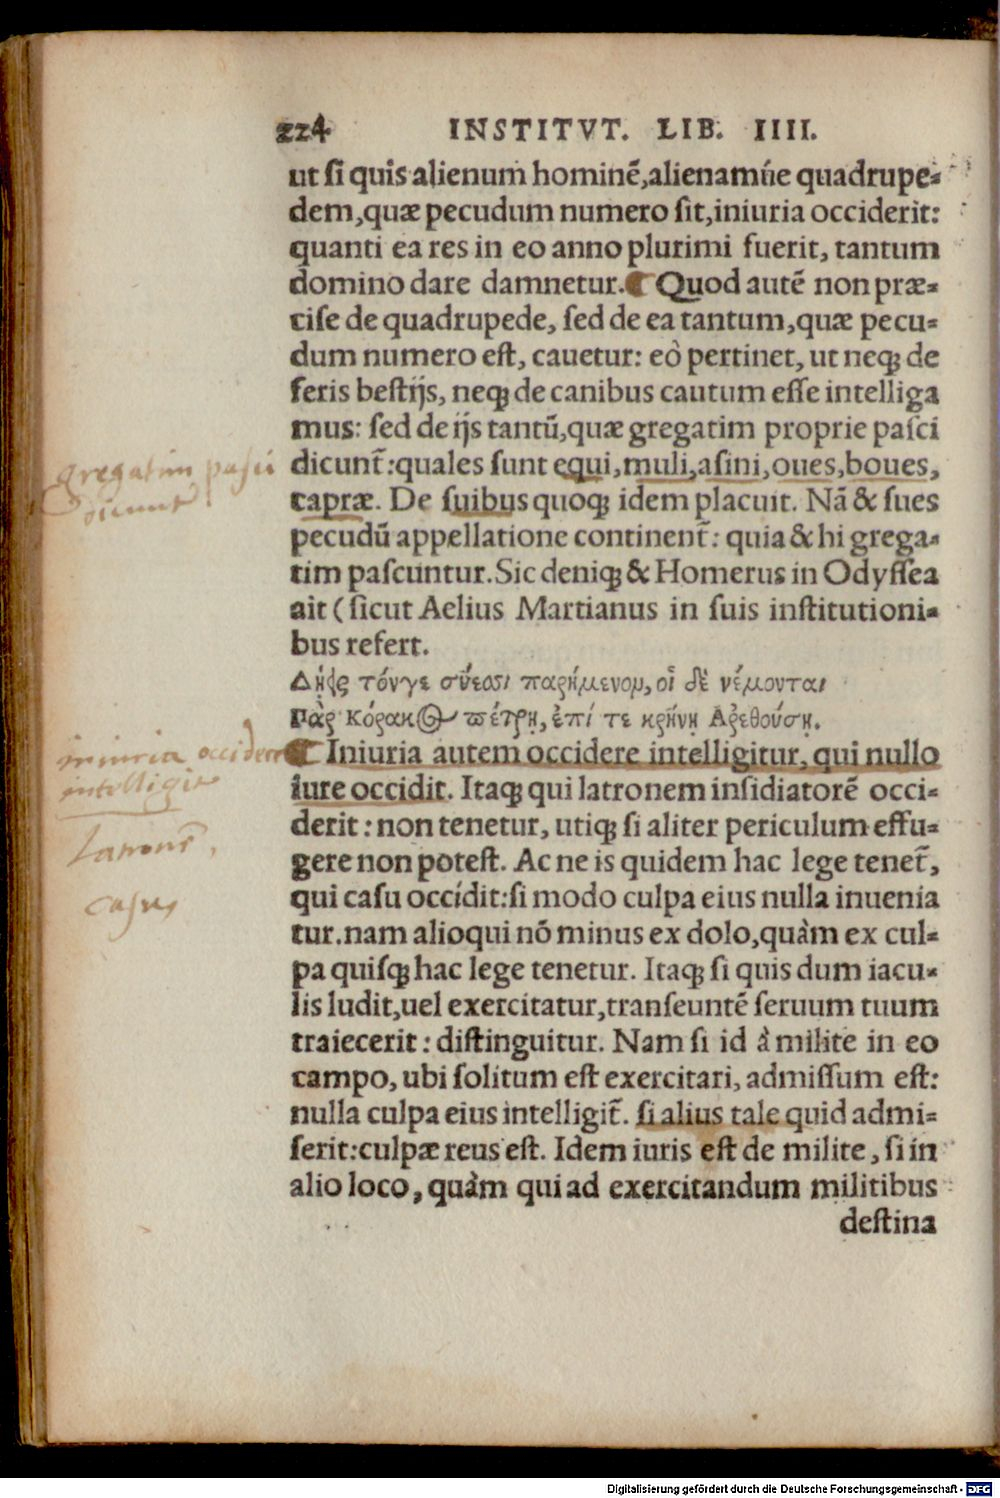 224 INSTITVT. LIB. IIII.
ut si quis alienum hominē,alienamúe quadrupe-
dem,quæ pecudum numero sit,iniuria occiderit:
quanti ea res in eo anno plurimi fuerit, tantum
domino dare damnetur.¶ Quod autē non præ-
cise de quadrupede, sed de ea tantum,quæ pecu-
dum numero est, cauetur: eò pertinet, ut neq; de
feris bestijs, neq; de canibus cautum esse intelliga
mus: sed de ijs tantū,quæ gregatim proprie pasci
gregatim pasci
dicunt̃:quales sunt equi,muli,asini,oues,boues,
dicunt
capræ. De suibus quoq; idem placuit. Nā & sues
pecudū appellatione continent̃: quia & hi grega-
tim pascuntur. Sic deniq; & Homerus in Odyssea
ait (sicut Aelius Martianus in suis institutioni-
bus refert.
Δήεις τόνγε σύεσσι παρήμενον, οἱ δὲ νέμονται
Πὰρ κόρακος πέτρῃ, ἐπί τε κρήνῃ Ἀρεθούσῃ.
iniuria occidere
¶ Iniuria autem occidere intelligitur, qui nullo
intelligitur
iure occidit. Itaq; qui latronem insidiatorē occi-
derit: non tenetur, utiq; si aliter periculum effu-
latronē,
gere non potest. Ac ne is quidem hac lege tenet̃,
casus
qui casu occidit:si modo culpa eius nulla inuenia
tur.nam alioqui nō minus ex dolo,quàm ex cul-
pa quisq; hac lege tenetur. Itaq; si quis dum iacu-
lis ludit,uel exercitatur,transeuntē seruum tuum
traiecerit: distinguitur. Nam si id à milite in eo
campo, ubi solitum est exercitari, admissum est:
nulla culpa eius intelligit̃. si alius tale quid admi-
serit:culpæ reus est. Idem iuris est de milite, si in
alio loco, quàm qui ad exercitandum militibus
destina
Digitalisierung gefördert durch die Deutsche Forschungsgemeinschaft - DFG